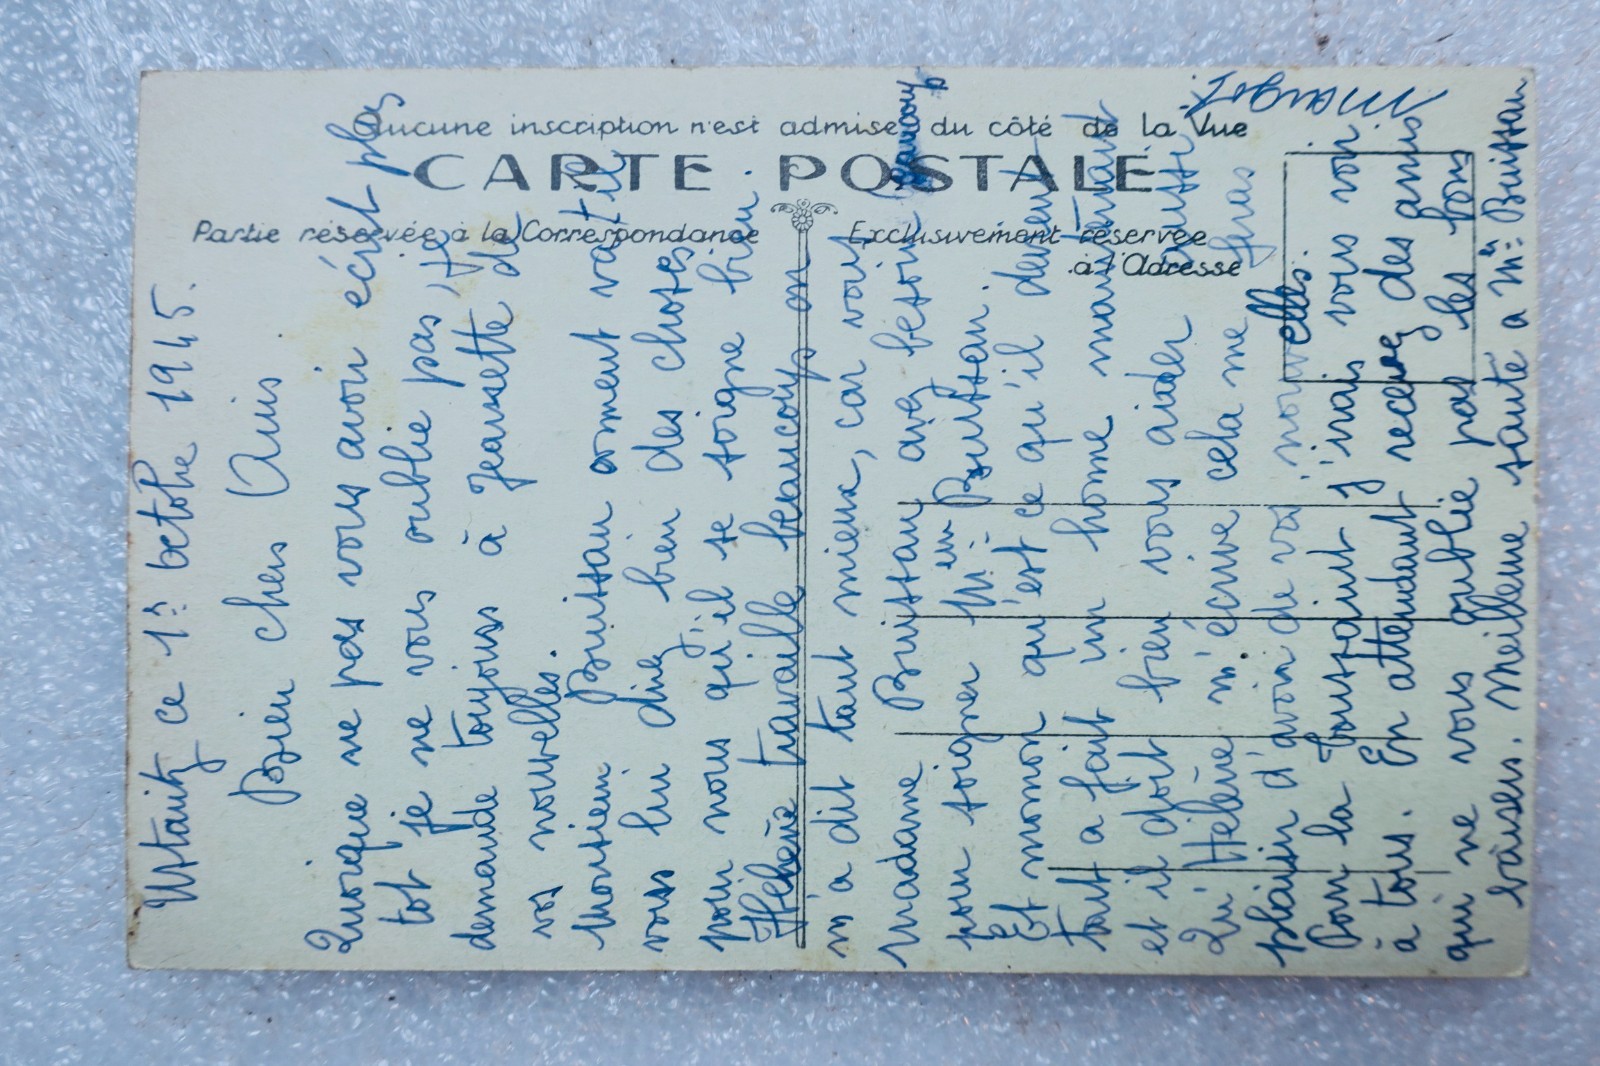 Aucune inscription n'est admise du côté de la Vue
CARTE POSTALE
Partie réservée à la Correspondance
Exclusivement réservée
à l'Adresse
Ustaritz ce 1er octobre 1945.
Bien chers Amis
Quoique ne pas vous avoir écrit plas
tot je ne vous oublie pas, Je
demande toujours à Jeansette de
vos nouvelles.
Monsieur Buissan coment vat il
vous lui direz bien des choses
pour nous qu'il se soigne bien.
Hélène travaille beaucoup on
m'a dit tant mieux, car vous
Madame Buissan avez besoin beaucoup
pour soigner Mr. Buissan.
Et monon qu'est ce qu'il devient
tout a fait un home maintenant
et il doit bien vous aider aussi.
Qu'Hélène m'écrive cela me feras
plaisir d'avoir de vos nouvelles.
Pour la Toussaint j'irais vous voir
à tous. En attendant recevez des amis
qui ne vous oublie pas les bons
baisers. Meilleure sante a Mr. Buissan